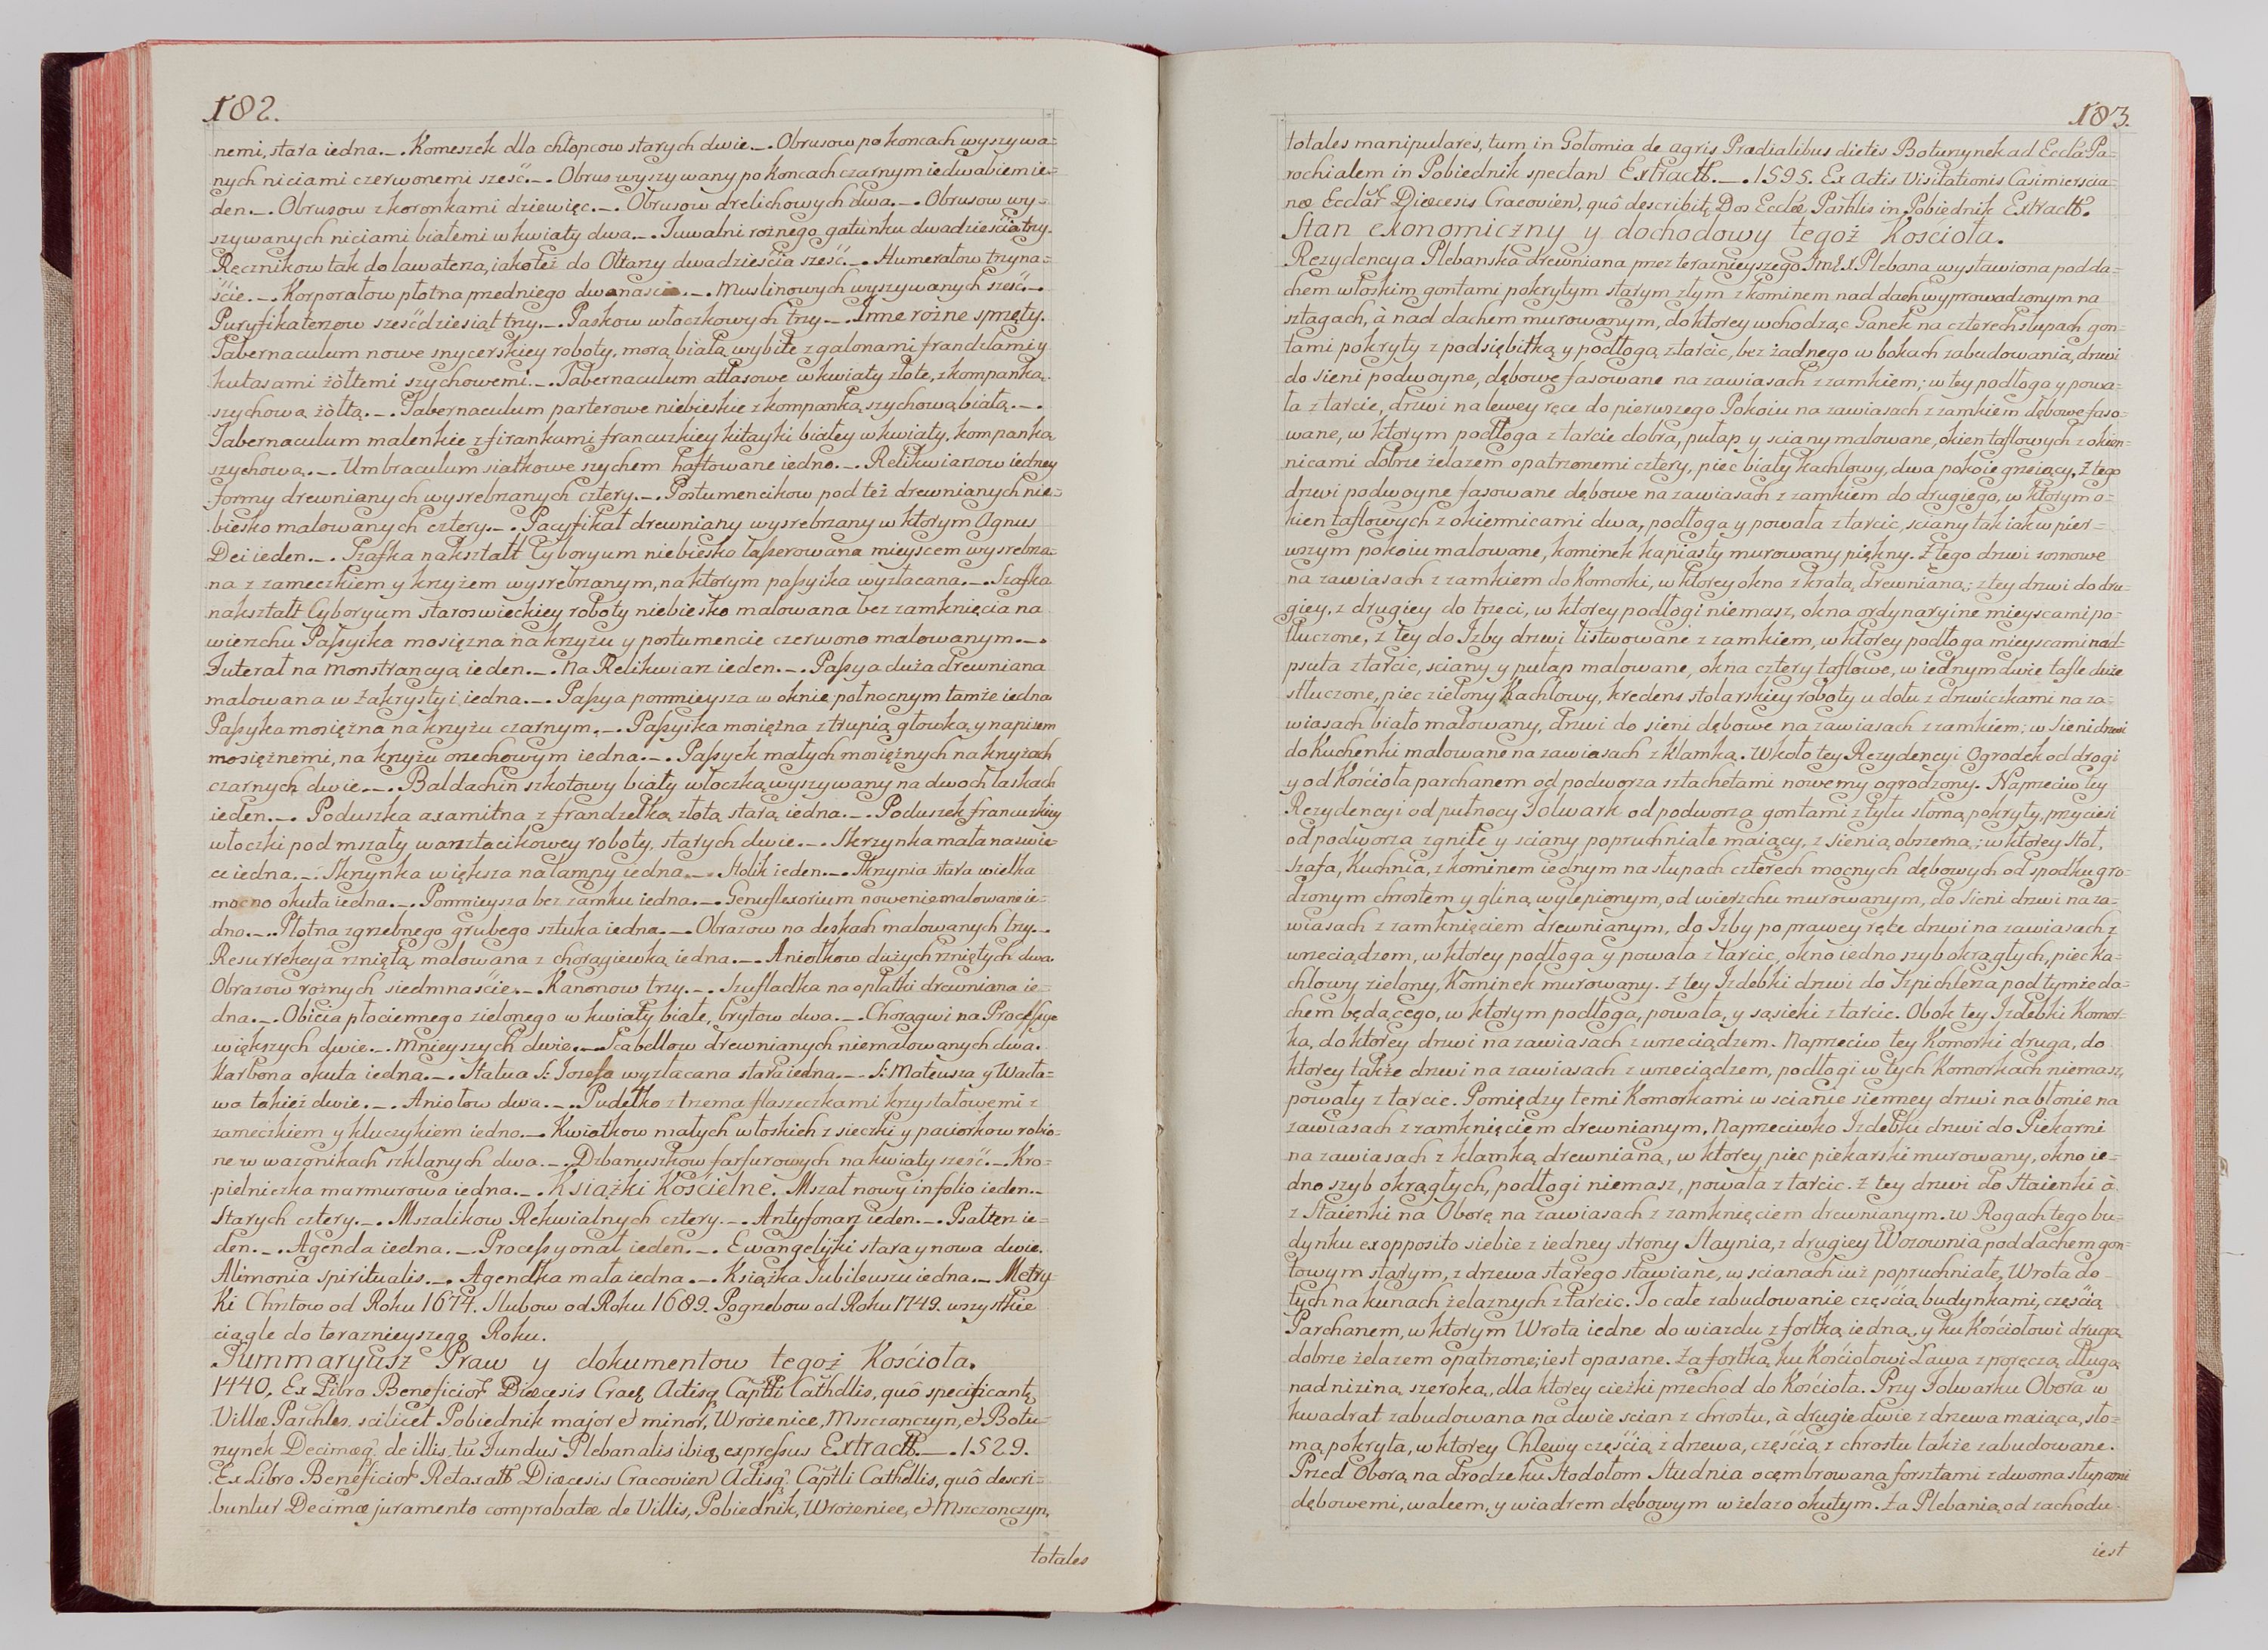 182.
nemi, stara iedna._. Komeszek dla chłopcow starych dwie._. Obrusow po koncach wyszywa=
nych niciami czerwonemi sześć._. Obrus wyszywany po koncach czarnym iedwabiem ie=
den._. Obrusow z koronkami dziewięc._. Obrusow drelichowych dwa._. Obrusow wy=
szywanych niciami białemi w kwiaty dwa._. Tuwalni rożnego gatunku dwadzieścia trzy.
Ręcznikow tak do lawaterza, iako też do Ołtarzy dwadzieścia sześć._. Humerałow trzyna=
ście._. Korporałow płotna przedniego dwanascie._. Muslinowych wyszywanych sześć._.
Puryfikaterzow sześćdziesiąt trzy._. Paskow włoczkowych trzy._. Inne rożne sprzęty.
Tabernaculum nowe snycerskiey roboty, morą białą wybite z galonami frandzlami y
kutasami żółtemi szychowemi._. Tabernaculum atłasowe w kwiaty złote, z kompanką
szychową żółtą._. Tabernaculum parterowe niebieskie z kompanką szychową białą._.
Tabernaculum malenkie z firankami francuzkiey kitayki białey w kwiaty, kompanką
szychową._. Umbraculum siatkowe szychem haftowane iedno._. Relikwiarzow iedney
formy drewnianych wysrebrzanych cztery._. Postumencikow pod też drewnianych nie=
biesko malowanych cztery._. Pacyfikał drewniany wysrebrzany w ktorym Agnus
Dei ieden._. Szafka nakształt Cyboryum niebiesko laszerowana mieyscem wysrebrza=
na z zameczkiem y krzyżem wysrebrzanym, na ktorym passyika wyzłacana._. Szafka
nakształt Cyboryum staroswieckiey roboty niebiesko malowana bez zamknięcia na
wierzchu Passyika mosiężna na krzyżu y postumencie czerwono malowanym._.
Futerał na Monstrancyą ieden._. Na Relikwiarz ieden._. Passya duża drewniana
malowana w Zakrystyi iedna._. Passya pomnieysza w oknie połnocnym tamże iedna
Passyka mosiężna na krzyżu czarnym._. Passyika mosiężna z trupią głowką y napisem
mosiężnemi, na krzyżu orzechowym iedna._. Passyek małych mosiężnych na krzyżach
czarnych dwie._. Baldachin szkotowy biały włoczką wyszywany na dwoch laskach
ieden._. Poduszka axamitna z frandzelką złotą starą iedna._. Poduszek francuskiey
włoczki pod mszały warsztacikowey roboty, starych dwie._. Skrzynka mała na swie=
ce iedna._. Skrzynka większa na lampy iedna._. Stolik ieden._. Skrzynia stara wielka
mocno okuta iedna._. Pomnieysza bez zamku iedna._. Genuflexorium nowe niemalowane ie=
dno._. Płotna zgrzebnego grubego sztuka iedna._. Obrazow na deskach malowanych trzy._.
Resurrekcya rznięta malowana z chorągiewką iedna._. Aniołkow dużych rzniętych dwa.
Obrazow rożnych siedmnaście._. Kanonow trzy._. Szufladka na opłatki drewniana ie=
dna._. Obicia płociennego zielonego w kwiaty białe, brytow dwa._. Chorągwi na Processye
większych dwie._. Mnieyszych dwie._. Scabellow drewnianych niemalowanych dwa.
Karbona okuta iedna._. Statua S: Jozefa wyzłacana stara iedna._. S: Mateusza y Wacła=
wa takież dwie._. Aniołow dwa._. Pudełko z trzema flaszeczkami krzyształowemi z
zameczkiem y kluczykiem iedno._. Kwiatkow małych włoskich z sieczki y paciorkow robio=
ne w wazonikach szklanych dwa._. Dzbanuszkow farfurowych na kwiaty sześć._. Kro=
pielniczka marmurowa iedna._. Książki Kościelne. Mszał nowy in folio ieden._.
Starych cztery._. Mszalikow Rekwialnych cztery._. Antyfonarz ieden._. Psałterz ie=
den._. Agenda iedna._. Processyonał ieden._. Ewangeliyki stara y nowa dwie.
Alimonia spiritualis._. Agendka mała iedna._. Książka Jubileuszu iedna._. Metry=
Ki Chrztow od Roku 1674. Slubow od Roku 1689. Pogrzebow od Roku 1749. wszystkie
ciągle do teraznieyszego Roku.
Summaryusz Praw y dokumentow tegoż Kościoła.
1440. Ex Libro Beneficior Diœcesis Cracq Actisq Captli Cathdlis, quô specificantq
Villæ Parchles. scilicet Pobiednik major et minor, Wrożenice, Mszczanczyn, et Botu=
rzynek Decimæq de illis, tu Fundus Plebanalis ibiq expressus Extractt._.1529.
Ex Libro Beneficior Retaxatt Diœcesis Cracovien Actisq Captli Cathdlis, quô descri=
buntur Decimæ juramento comprobatæ de Villis, Pobiednik, Wrożenice, et Mszczonczyn,
totales
183.
totales manipulares, tum in Gołomia de agris Prædialibus dictis Boturzynek ad Eccla Pa=
rochialem in Pobiednik spectan Extractt._.1595. Ex Actis Visitationis Casimierscia=
næ Ecclar Diœcesis Cracovien, quô describitq Dos Ecclæ Parhlis in Pobiednik Extractt.
Stan ekonomiczny y dochodowy tegoż Kościoła.
Rezydencya Plebanska drewniana przez teraznieyszego Jmć X Plebana wystawiona pod da=
chem włoskim gontami pokrytym starym złym z kominem nad dach wyprowadzonym na
sztagach, a nad dachem murowanym, do ktorey wchodząc Ganek na czterech słupach gon=
tami pokryty z podsiębitką y podłogą z tarcic, bez żadnego w bokach zabudowania, drzwi
do sieni podwoyne, dębowe fasowane na zawiasach z zamkiem; w tey podłoga y powa=
ła z tarcic, drzwi na lewey ręce do pierwszego Pokoiu na zawiasach z zamkiem dębowe faso=
wane, w ktorym podłoga z tarcic dobra, pułap y sciany malowane, okien taflowych z okien=
nicami dobrze żelazem opatrzonemi cztery, piec biały kachlowy, dwa pokoie grzeiący, Z tego
drzwi podwoyne fasowane dębowe na zawiasach z zamkiem do drugiego, w ktorym o=
kien taflowych z okiennicami dwa, podłoga y powała z tarcic, sciany tak iak w pier=
wszym pokoiu malowane, kominek kapiasty murowany piękny. Z tego drzwi sosnowe
na zawiasach z zamkiem do Komorki, w ktorey okno z kratą drewnianą; z tey drzwi do dru=
giey, z drugiey do trzeci, w ktorey podłogi niemasz, okna ordynaryine mieyscami po=
tłuczone, z tey do Izby drzwi listwowane z zamkiem, w ktorey podłoga mieyscami nad=
psuta z tarcic, sciany y pułap malowane, okna cztery taflowe, w iednym dwie tafle duże
stłuczone, piec zielony Kachlowy, kredens stolarskiey roboty u dołu z drzwiczkami na za=
wiasach biało malowany, drzwi do sieni dębowe na zawiasach z zamkiem; w Sieni drzwi
do Kuchenki malowane na zawiasach z klamką. Wkoło tey Rezydencyi Ogrodek od drogi
y od Kościoła parchanem od podworza sztachetami nowemy ogrodzony. Naprzeciw tey
Rezydencyi od pułnocy Folwark od podworza gontami z tyłu słomą pokryty, przyciesi
od podworza zgniłe y sciany popruchniałe maiący, z sienią obszerną; w ktorey Stoł,
Szafa, Kuchnia, z kominem iednym na słupach czterech mocnych dębowych od spodku gro=
dzonym chrostem y gliną wylepionym, od wierzchu murowanym, do Sieni drzwi na za=
wiasach z zamknięciem drewnianym, do Izby po prawey ręce drzwi na zawiasach z
wrzeciądzem, w ktorey podłoga y powała z tarcic, okno iedno szyb okrągłych, piec ka=
chlowy zielony, Kominek murowany. Z tey Izdebki drzwi do Szpichlerza pod tymże da=
chem będącego, w ktorym podłoga, powała, y sąsieki z tarcic. Obok tey Izdebki Komor=
ka, do ktorey drzwi na zawiasach z wrzeciądzem. Naprzeciw tey Komorki druga, do
ktorey także drzwi na zawiasach z wrzeciądzem, podłogi w tych Komorkach niemasz,
powały z tarcic. Pomiędzy temi Komorkami w scianie sienney drzwi na błonie na
zawiasach z zamknięciem drewnianym. Naprzeciwko Izdebki drzwi do Piekarni
na zawiasach z klamką drewnianą, w ktorey piec piekarski murowany, okno ie=
dno szyb okrągłych, podłogi niemasz, powała z tarcic. Z tey drzwi do Staienki a
z Staienki na Oborę na zawiasach z zamknięciem drewnianym. W Rogach tego bu=
dynku ex opposito siebie z iedney strony Staynia, z drugiey Wozownia pod dachem gon=
towym starym, z drzewa starego stawiane, w scianach iuż popruchniałe, Wrota do
tych na kunach żelaznych z tarcic. To całe zabudowanie częścią budynkami, częścią
Parchanem, w ktorym Wrota iedne do wiazdu z fortką iedną, y ku Kościołowi drugą
dobrze żelazem opatrzone; iest opasane. Za fortką ku Kościołowi Ława z poręczą długą
nad niziną szeroką, dla ktorey ciężki przechod do Kościoła. Przy Folwarku Obora w
kwadrat zabudowana na dwie scian z chrostu, à drugie dwie z drzewa maiąca, sło=
mą pokryta, w ktorey Chlewy częścią z drzewa, częścią z chrostu także zabudowane.
Przed Oborą na drodze ku Stodołom Studnia ocembrowana forsztami z dwoma słupami
dębowemi, walcem, y wiadrem dębowym w żelazo okutym. Za Plebanią od zachodu
iest